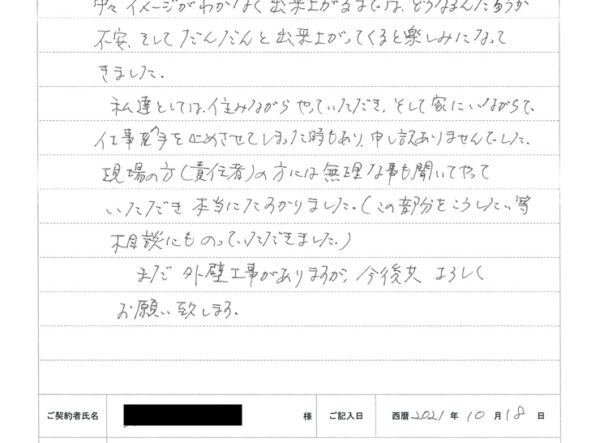 中々イメージがわかなく出来上がるまでは、どうなるんだろうか
不安、そしてだんだんと出来上がってくると楽しみになって
きました。
私達としては、住みながらやっていただき、そして家にいながらで、
仕事の手を止めさせてしまった時もあり、申し訳ありませんでした。
現場の方(責任者)の方には無理な事も聞いてやって
いただき本当にたすかりました。(この部分をこうしたい等
相談にものっていただきました。)
まだ外壁工事がありますが、今後共よろしく
お願い致します。
ご契約者氏名 様 ご記入日 西暦 2021 年 10 月 18 日